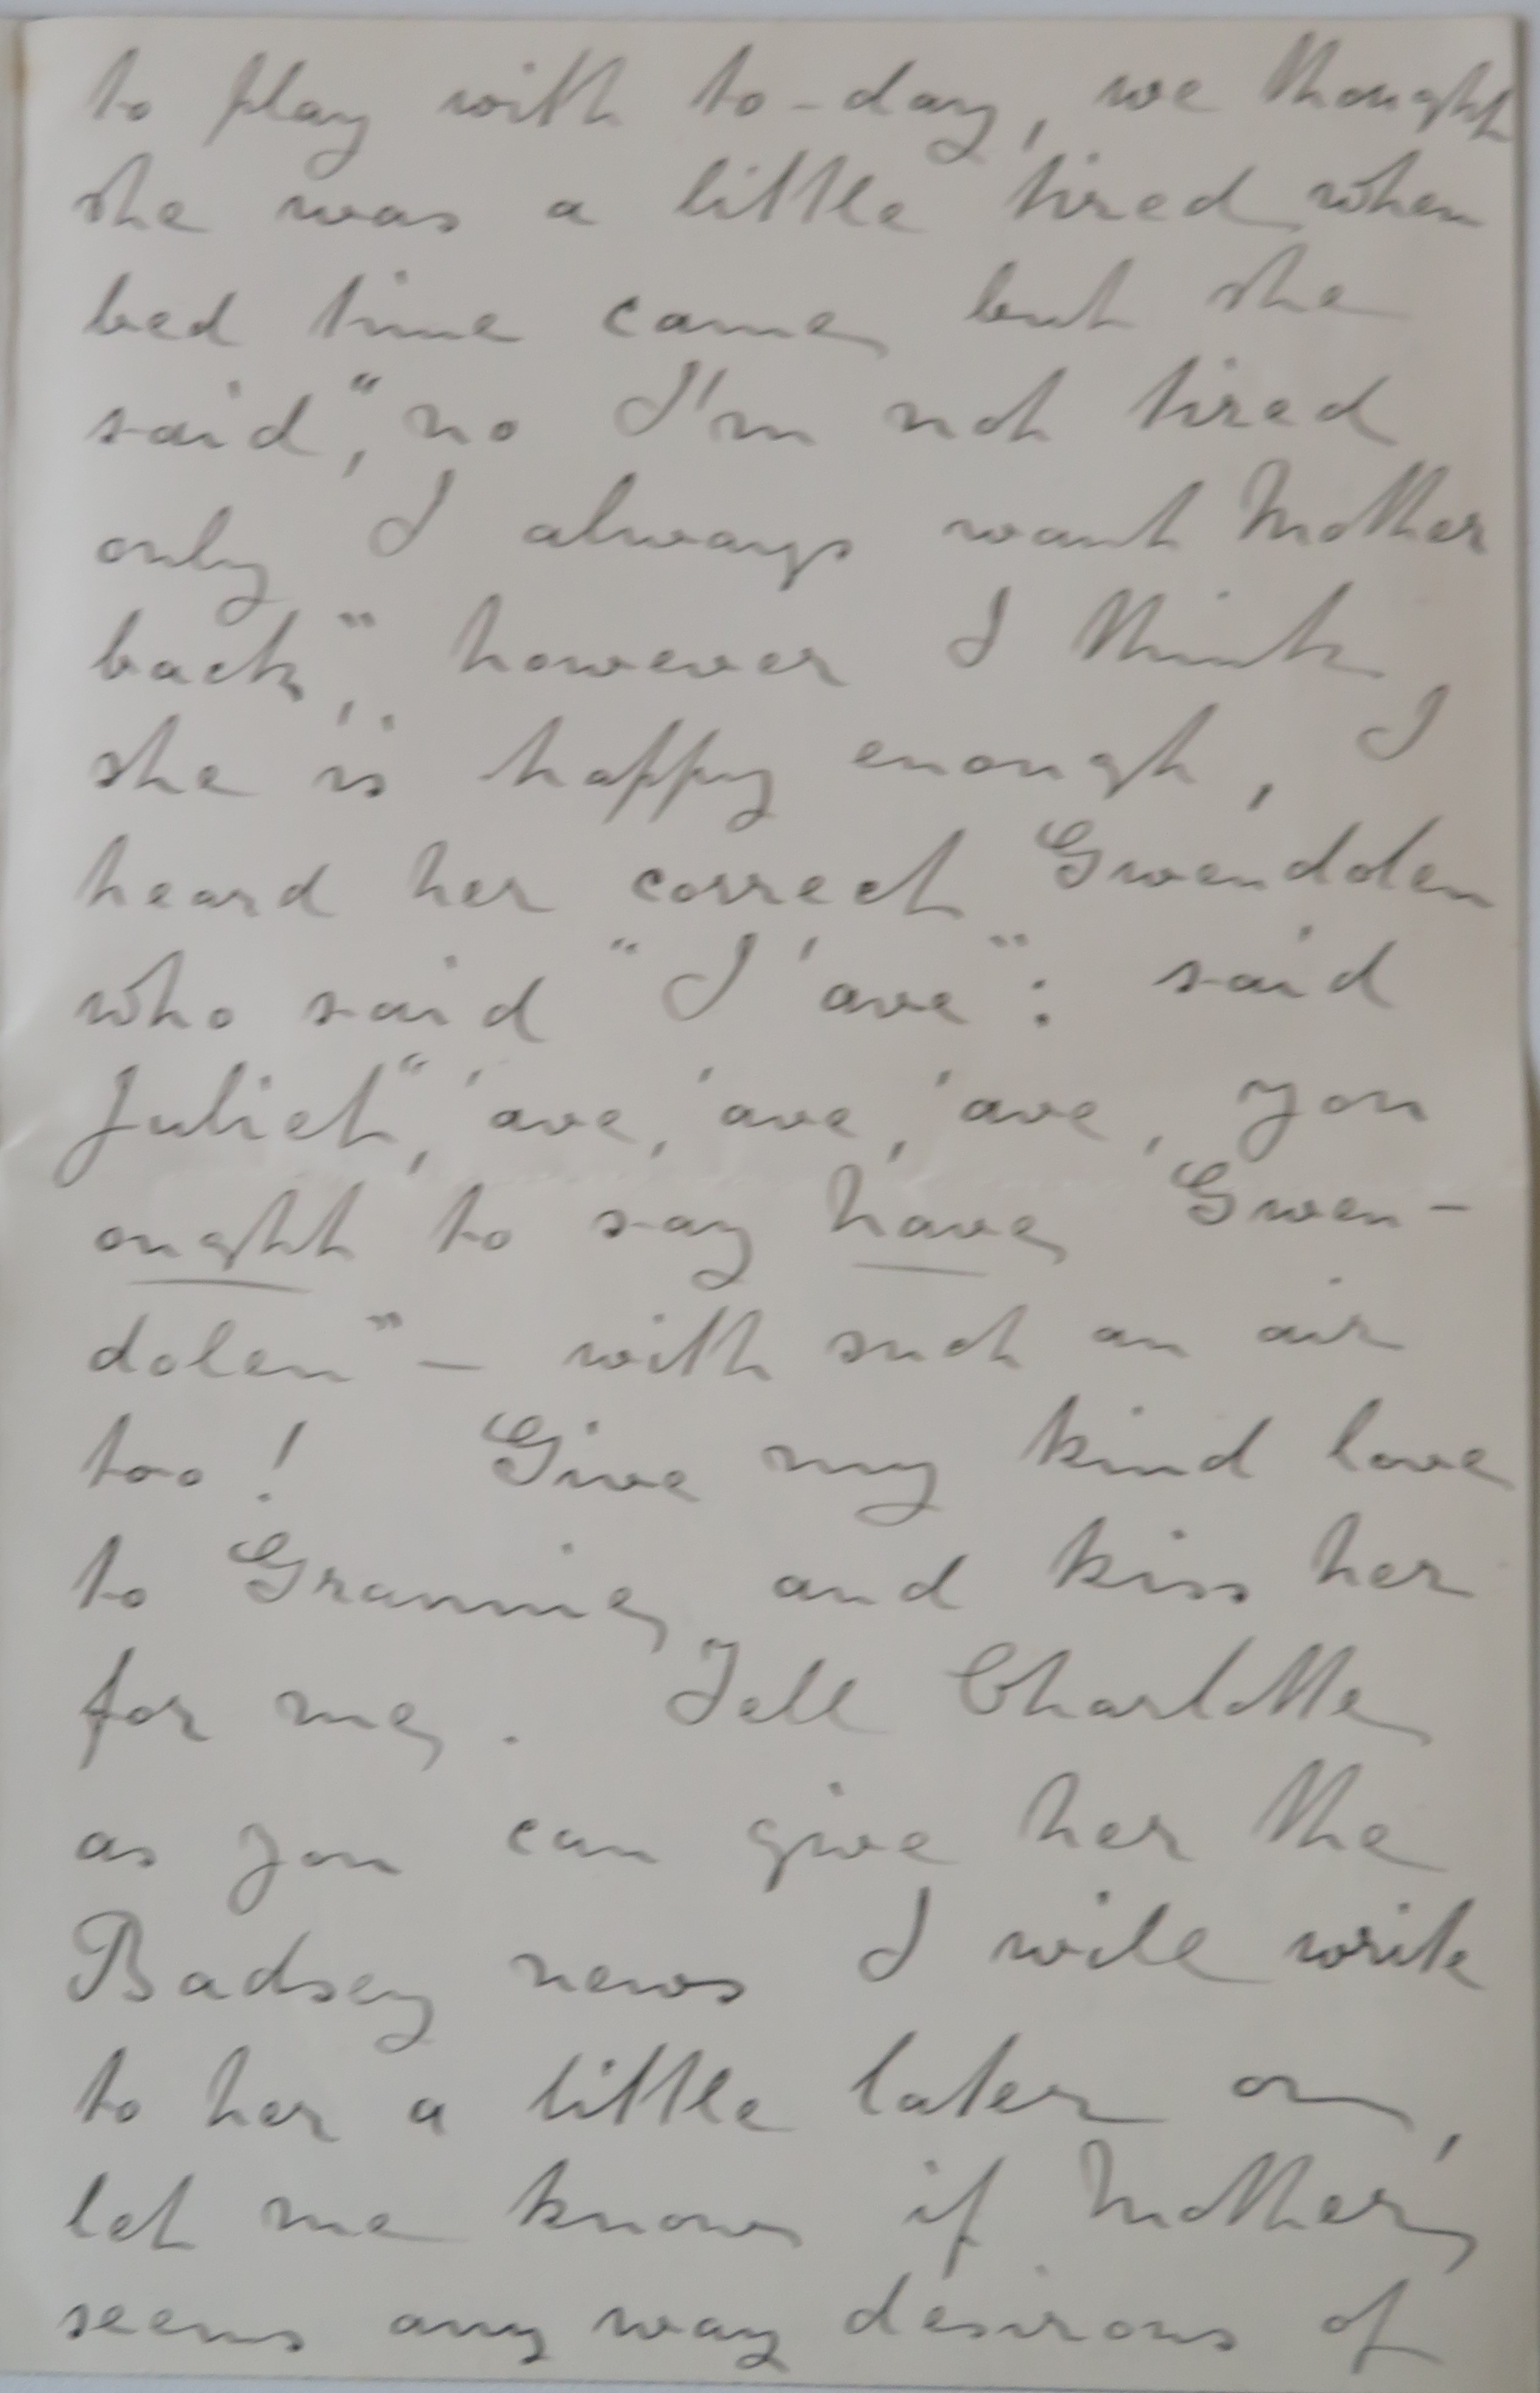 to play with to-day, we thought
she was a little tired when
bed time came but she
said, "no I'm not tired
only I always want Mother
back," however I think
she is happy enough, I
heard her correct Gwendolen
who said "I 'ave": said
Juliet, "'ave, 'ave, 'ave, you
ought to say have Gwen-
dolen" — with such an air
too! Give my kind love
to Grannie and kiss her
for me. Tell Charlotte
as you can give her the
Badsey news I will write
to her a little later on,
let me know if Mother
seems any way desirous of